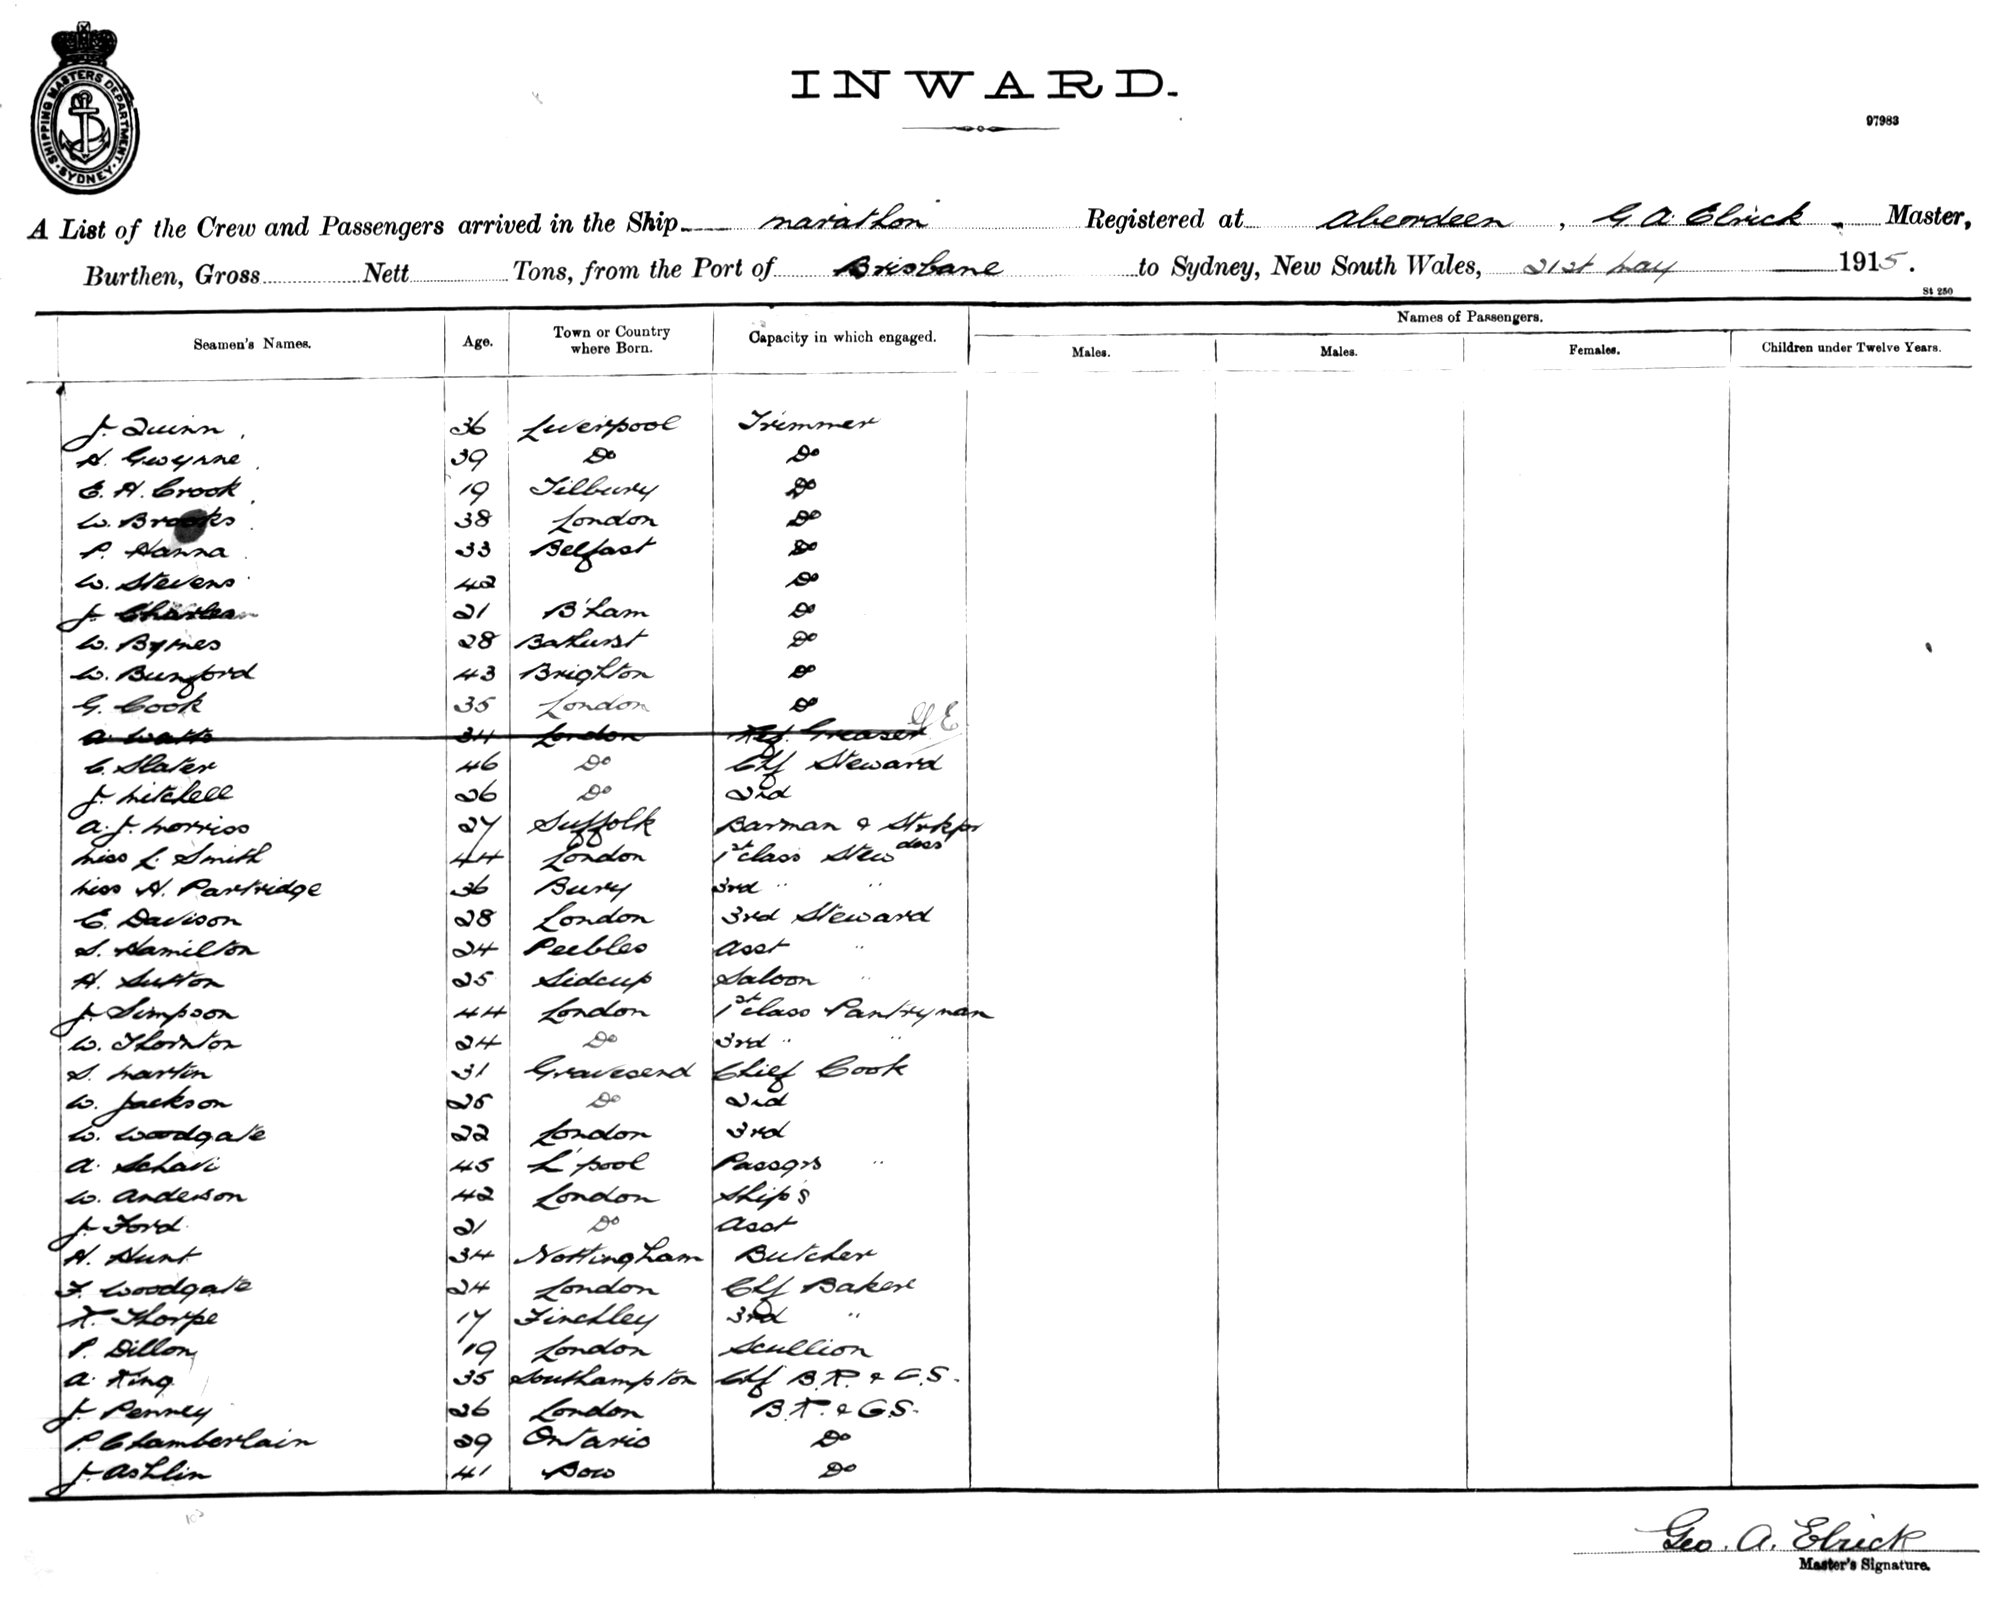 SHIPPING MASTERS DEPARTMENT. SYDNEY.
INWARD.
97983
A List of the Crew and Passengers arrived in the Ship Marathon Registered at Aberdeen, G. A. Elrick. Master,
Burthen, Gross Nett Tons, from the Port of Brisbane to Sydney, New South Wales, 21st May 1915.
St 250
Seamen's Names. Age. Town or Country where Born. Capacity in which engaged. Names of Passengers.
Males. Males. Females. Children under Twelve Years.
J. Quinn 36 Liverpool Trimmer
H. Gwynne 39 Do Do
E. H. Crook 19 Tilbury Do
W. Brooks 38 London Do
P. Hanna 33 Belfast Do
W. Stevens 42 Do
J. 21 B'ham Do
W. Byrnes 28 Bathurst Do
W. Bunford 43 Brighton Do
G. Cook 35 London Do
A. Watts 34 London Greaser
C. Slater 46 Do Chf Steward
J. Mitchell 26 Do 2nd
A. J. Morriss 27 Suffolk Barman & Strkpr
Miss L. Smith 44 London 1st class Stewdess
Miss H. Partridge 36 Bury 3rd " "
C. Davison 28 London 3rd Steward
S. Hamilton 24 Peebles Asst "
H. Sutton 25 Sidcup Saloon "
J. Simpson 44 London 1st class Pantryman
W. Thornton 24 Do 3rd " "
S. Martin 31 Gravesend Chief Cook
W. Jackson 25 Do 2nd
W. Woodgate 22 London 3rd
A. Schavi 45 L'pool Passgrs "
W. Anderson 42 London Ship's
J. Ford 21 Do Asst
H. Hunt 34 Nottingham Butcher
F. Woodgate 24 London Chf Baker
R. Thorpe 17 Finchley 3rd "
P. Dillon 19 London Scullion
A. King 35 Southampton Chf B.R. & G.S.
J. Penney 26 London B.R. & G.S.
P. Chamberlain 29 Ontario Do
J. Ashlin 41 Bow Do
Geo. A. Elrick
Master's Signature.